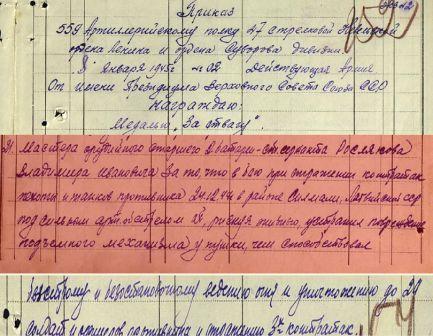 Приказ
559 Артиллерийскому полку 47 стрелковой Невельской
ордена Ленина и ордена Суворова дивизии
8 Января 1945г № 02 Действующая Армия
От имени Президиума Верховного Совета Союза ССР
Награждаю:
Медалью "За отвагу".
Мастера орудийного старшего батареи ст. сержанта Рослякова
Владимира Ивановича За то что в бою при отражении контратак
пехоты и танков противника 24.12.44 в районе Латвийской ССР
под сильным артобстрелом рискуя жизнью, устранил повреждение
подъемного механизма у пушки, чем способствовал
быстрому и безостановочному ведению огня и уничтожению до 20
солдат и офицеров противника и отражению 3х контратак.